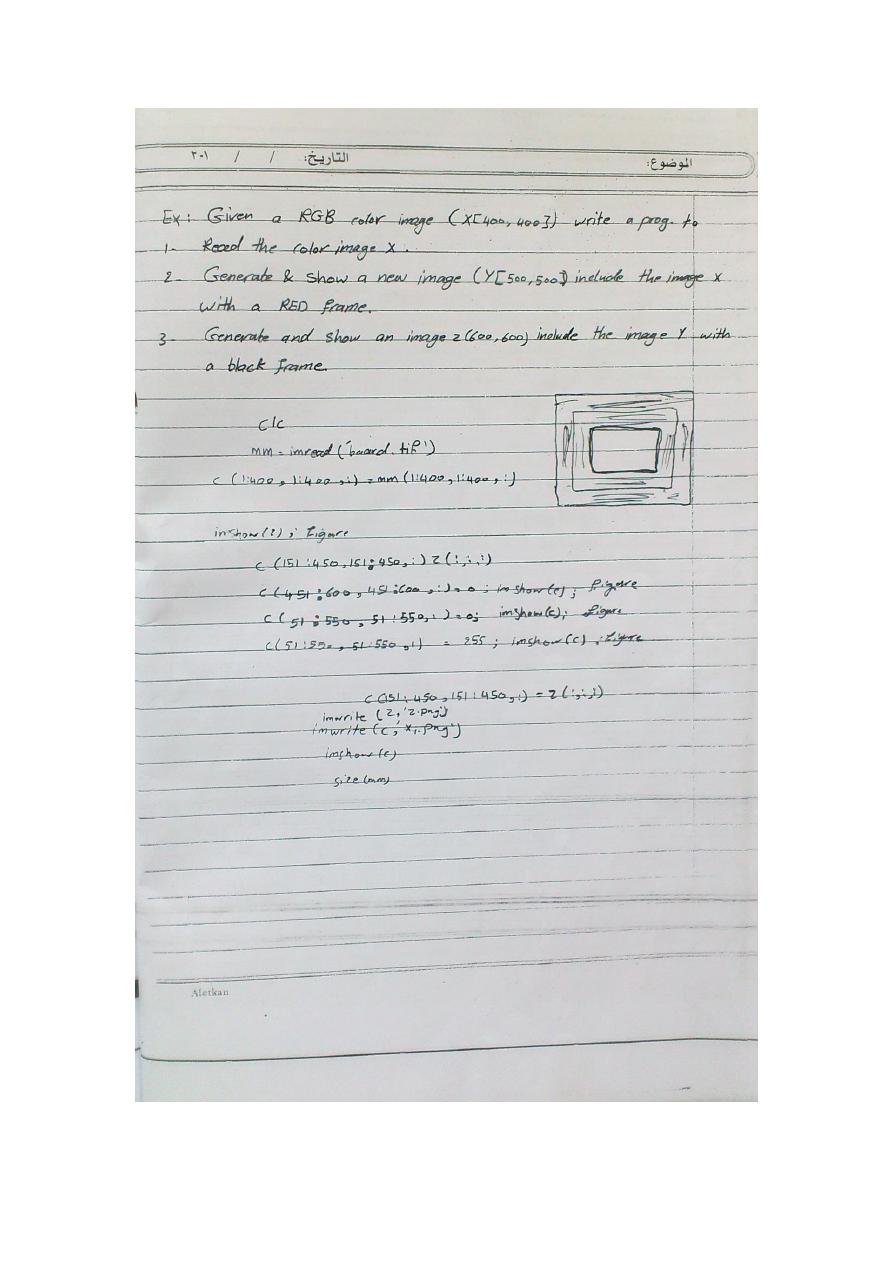 الموضوع: التاريخ: / / ٢٠١
Ex: Given a RGB color image (X[400,400]) write a prog. to
1- Reead the color image X.
2- Generate & show a new image (Y[500,500] include the image x
with a RED frame.
3- Generate and show an image z(600,600) include the image Y with
a black frame.
clc
mm = imread('board.tif')
c (1:400, 1:400,:) = mm(1:400,1:400,:)
imshow(z); figure
c (151:450,151:450,:) z(:,:,:)
c(451:600, 451:600,:) = 0; imshow(c); figure
c(51:550, 51:550,:) = 0; imshow(c); figure
c(51:550, 51:550,1) = 255; imshow(c); figure
c(151:450,151:450,:) = z(:,:,:)
imwrite (z,'z.png')
imwrite(c,'x1.png')
imshow(c)
size(mm)
Aletkan